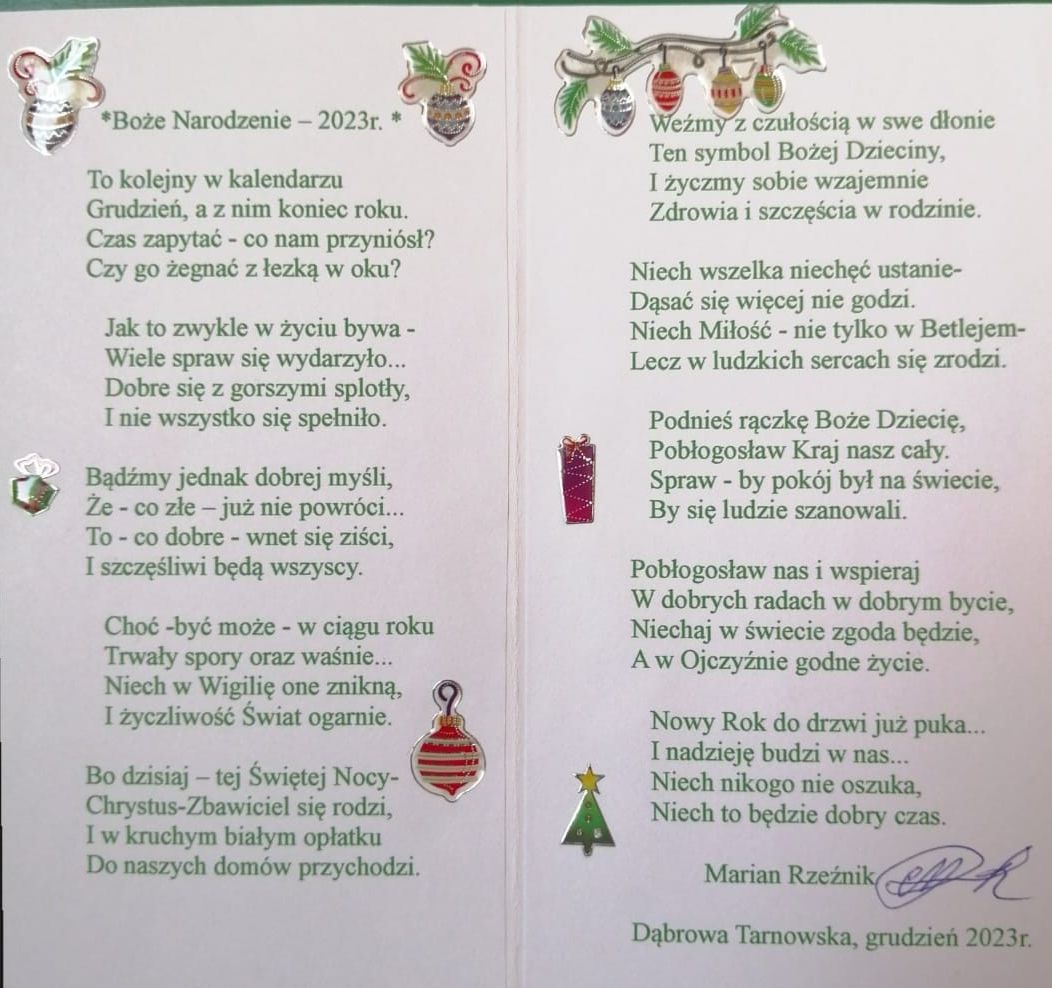 *Boże Narodzenie – 2023r. *
To kolejny w kalendarzu
Grudzień, a z nim koniec roku.
Czas zapytać - co nam przyniósł?
Czy go żegnać z łezką w oku?
Jak to zwykle w życiu bywa -
Wiele spraw się wydarzyło...
Dobre się z gorszymi splotły,
I nie wszystko się spełniło.
Bądźmy jednak dobrej myśli,
Że - co złe – już nie powróci...
To - co dobre - wnet się ziści,
I szczęśliwi będą wszyscy.
Choć -być może - w ciągu roku
Trwały spory oraz waśnie...
Niech w Wigilię one znikną,
I życzliwość Świat ogarnie.
Bo dzisiaj – tej Świętej Nocy-
Chrystus-Zbawiciel się rodzi,
I w kruchym białym opłatku
Do naszych domów przychodzi.
Weźmy z czułością w swe dłonie
Ten symbol Bożej Dzieciny,
I życzmy sobie wzajemnie
Zdrowia i szczęścia w rodzinie.
Niech wszelka niechęć ustanie-
Dąsać się więcej nie godzi.
Niech Miłość - nie tylko w Betlejem-
Lecz w ludzkich sercach się zrodzi.
Podnieś rączkę Boże Dziecię,
Pobłogosław Kraj nasz cały.
Spraw - by pokój był na świecie,
By się ludzie szanowali.
Pobłogosław nas i wspieraj
W dobrych radach w dobrym bycie,
Niechaj w świecie zgoda będzie,
A w Ojczyźnie godne życie.
Nowy Rok do drzwi już puka...
I nadzieję budzi w nas...
Niech nikogo nie oszuka,
Niech to będzie dobry czas.
Marian Rzeźnik
Dąbrowa Tarnowska, grudzień 2023r.